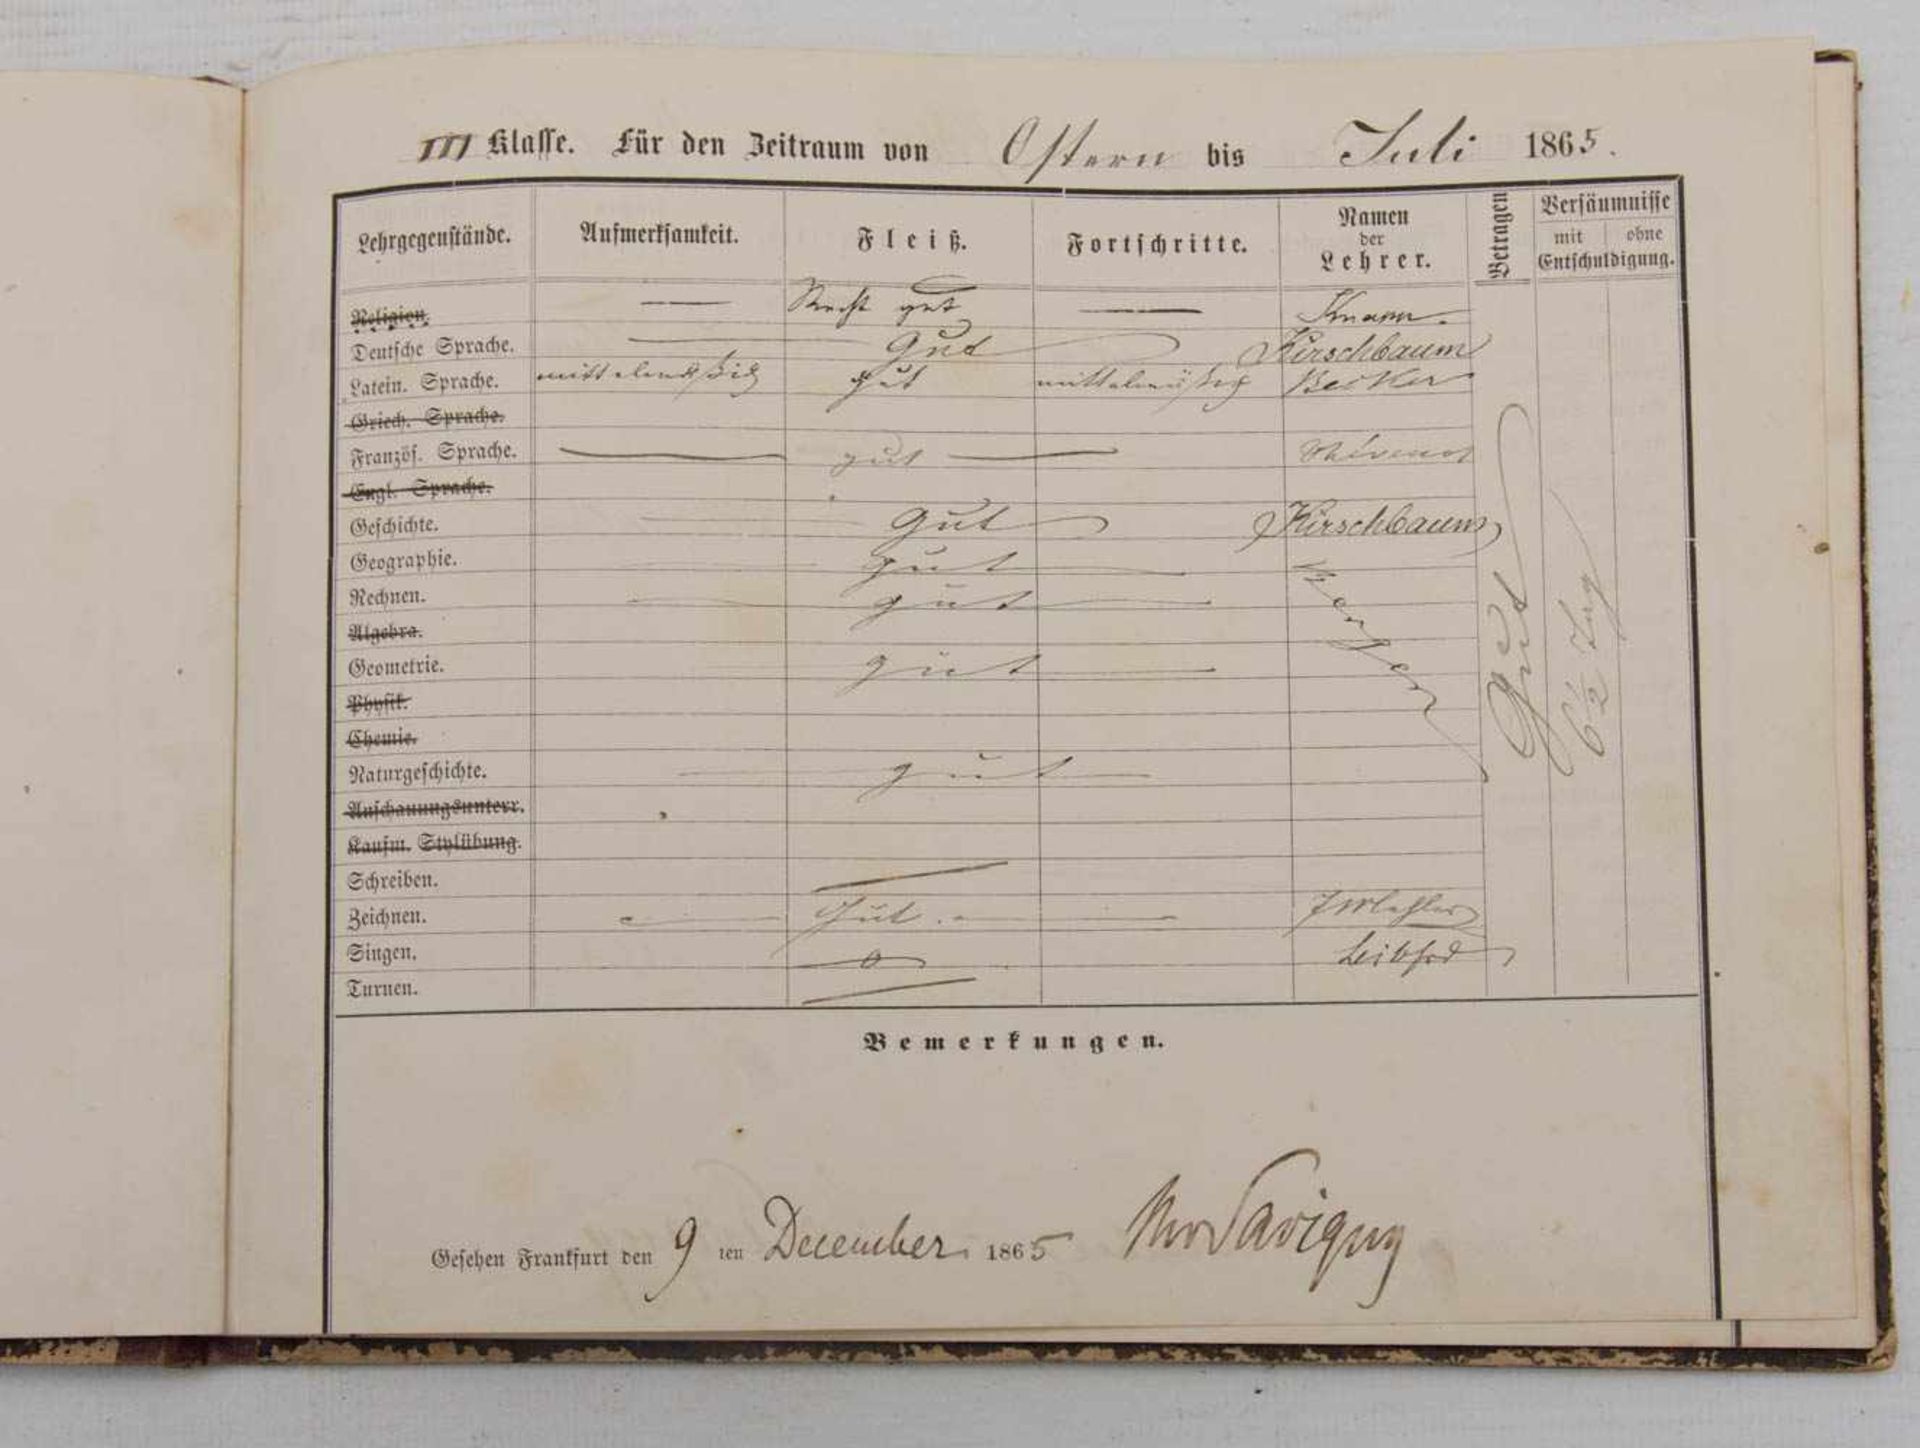 III Klasse. Für den Zeitraum von Ostern bis Juli 1865.
Lehrgegenstände. Aufmerksamkeit. Fleiß. Fortschritte. Namen der Lehrer. Betragen Versäumnisse mit ohne Entschuldigung.
Religion. Recht gut
Deutsche Sprache. Gut Kirschbaum
Latein. Sprache. mittelmäßig gut mittelmäßig Becker
Griech. Sprache.
Französ. Sprache. gut
Engl. Sprache.
Geschichte. Gut Kirschbaum
Geographie. gut
Rechnen. gut
Algebra.
Geometrie. gut
Physik.
Chemie.
Naturgeschichte. gut
Anschauungsunterr.
Kaufm. Stylübung.
Schreiben.
Zeichnen. Gut
Singen.
Turnen.
Gut
6 1/2 Tag
Bemerkungen.
Gesehen Frankfurt den 9 ten December 1865 Savigny